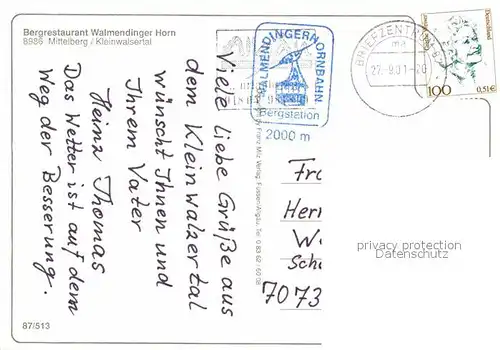 Bergrestaurant Walmendinger Horn
8986 Mittelberg / Kleinwalsertal
Viele liebe Grüße aus
dem Kleinwalzertal
wünscht Ihnen und
Ihrem Vater
Heinz Thomas
Das Wetter ist auf dem
Weg der Besserung.
87/513
WALMENDINGERHORNBAHN
Bergstation
2000 m
Franz Milz Verlag
BRIEFZENTRUM
27.-9.01-20
Deutschland
100
0,51€
Fra
Her
W
Sch
7073
privacy protection
Datenschutz